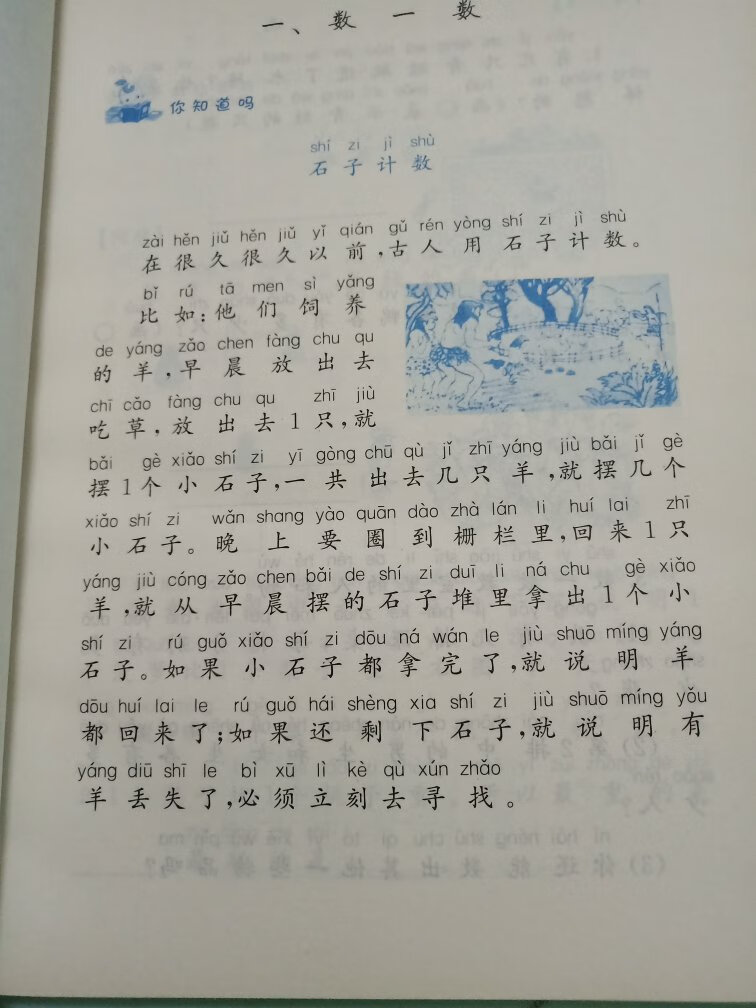 一、数一数
你知道吗
shí zi jì shù
石子计数
zài hěn jiǔ hěn jiǔ yǐ qián gǔ rén yòng shí zi jì shù
在很久很久以前,古人用石子计数。
bǐ rú tā men sì yǎng
比如:他们饲养
de yáng zǎo chen fàng chu qu
的羊,早晨放出去
chī cǎo fàng chu qu zhī jiù
吃草,放出去1只,就
bǎi gè xiǎo shí zi yī gòng chū qù jǐ zhī yáng jiù bǎi jǐ gè
摆1个小石子,一共出去几只羊,就摆几个
xiǎo shí zi wǎn shang yào quān dào zhà lán li huí lai zhī
小石子。晚上要圈到栅栏里,回来1只
yáng jiù cóng zǎo chen bǎi de shí zi duī li ná chu gè xiǎo
羊,就从早晨摆的石子堆里拿出1个小
shí zi rú guǒ xiǎo shí zi dōu ná wán le jiù shuō míng yáng
石子。如果小石子都拿完了,就说明羊
dōu huí lai le rú guǒ hái shèng xia shí zi jiù shuō míng yǒu
都回来了;如果还剩下石子,就说明有
yáng diū shī le bì xū lì kè qù xún zhǎo
羊丢失了,必须立刻去寻找。